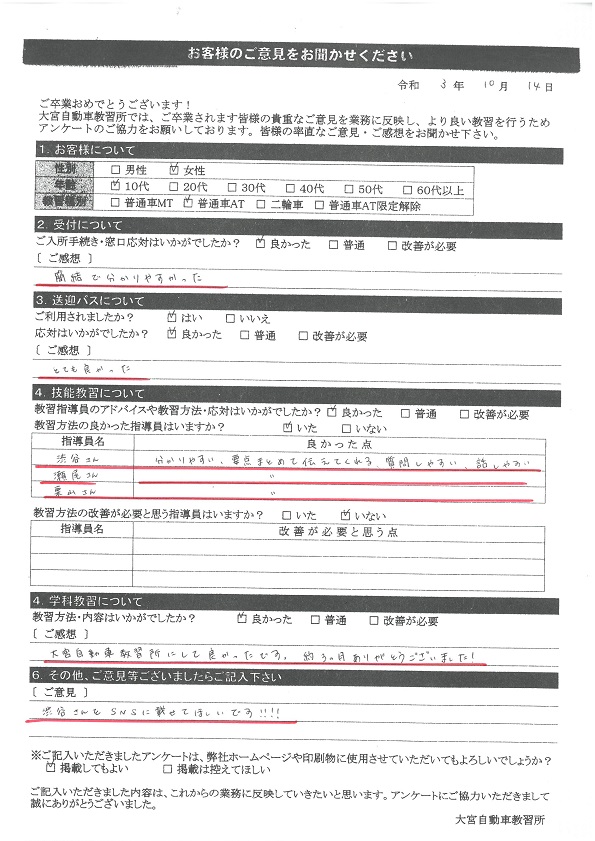 お客様のご意見をお聞かせください
令和 3 年 10 月 14 日
ご卒業おめでとうございます！
大宮自動車教習所では、ご卒業されます皆様の貴重なご意見を業務に反映し、より良い教習を行うため
アンケートのご協力をお願いしております。皆様の率直なご意見・ご感想をお聞かせ下さい。
1. お客様について
性別 □ 男性 ☑ 女性
年齢 ☑ 10代 □ 20代 □ 30代 □ 40代 □ 50代 □ 60代以上
教習種別 □ 普通車MT ☑ 普通車AT □ 二輪車 □ 普通車AT限定解除
2. 受付について
ご入所手続き・窓口応対はいかがでしたか？ ☑ 良かった □ 普通 □ 改善が必要
[ ご感想 ]
簡結で分かりやすかった
3. 送迎バスについて
ご利用されましたか？ ☑ はい □ いいえ
応対はいかがでしたか？ ☑ 良かった □ 普通 □ 改善が必要
[ ご感想 ]
とても良かった
4. 技能教習について
教習指導員のアドバイスや教習方法・応対はいかがでしたか？ ☑ 良かった □ 普通 □ 改善が必要
教習方法の良かった指導員はいますか？ ☑ いた □ いない
指導員名 良かった点
渋谷さん 分かりやすい、要点まとめて伝えてくれる、質問しやすい、話しやすい
瀬尾さん 〃
栗山さん 〃
教習方法の改善が必要と思う指導員はいますか？ □ いた ☑ いない
指導員名 改善が必要と思う点
4. 学科教習について
教習方法・内容はいかがでしたか？ ☑ 良かった □ 普通 □ 改善が必要
[ ご感想 ]
大宮自動車教習所にして良かったです。約3ヵ月ありがとうございました！
6. その他、ご意見等ございましたらご記入下さい
[ ご意見 ]
渋谷さんをSNSに載せてほしいです!!!!
※ご記入いただきましたアンケートは、弊社ホームページや印刷物に使用させていただいてもよろしいでしょうか？
☑ 掲載してもよい □ 掲載は控えてほしい
ご記入いただきました内容は、これからの業務に反映していきたいと思います。アンケートにご協力いただきまして
誠にありがとうございました。
大宮自動車教習所